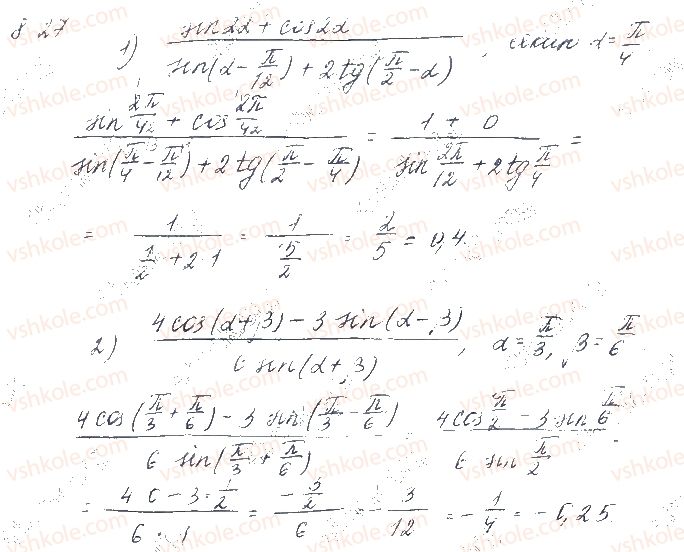 8 27
1) (sin2α + cos2α) / (sin(α - π/12) + 2tg(π/2 - α)), якщо α = π/4
(sin 2π/4₂ + cos 2π/4₂) / (sin(π/4 - π/12) + 2tg(π/2 - π/4)) = (1 + 0) / (sin 2π/12 + 2tg π/4) =
= 1 / (1/2 + 2·1) = 1 / (5/2) = 2/5 = 0,4.
2) (4cos(α+β) - 3 sin(α-β)) / (6 sin(α+β)), α = π/3, β = π/6
(4cos(π/3 + π/6) - 3 sin(π/3 - π/6)) / (6 sin(π/3 + π/6)) (4cos π/2 - 3 sin π/6) / (6 sin π/2)
= (4·0 - 3·1/2) / (6·1) = (-3/2) / 6 = -3/12 = -1/4 = -0,25